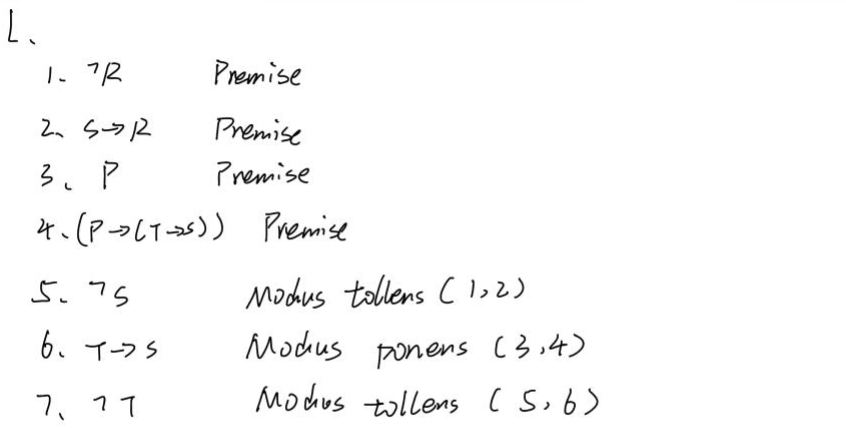 1、
1. ¬R Premise
2、 S→R Premise
3、 P Premise
4、(P→(T→S)) Premise
5. ¬S Modus tollens (1,2)
6、 T→S Modus ponens (3,4)
7、 ¬T Modus tollens (5,6)